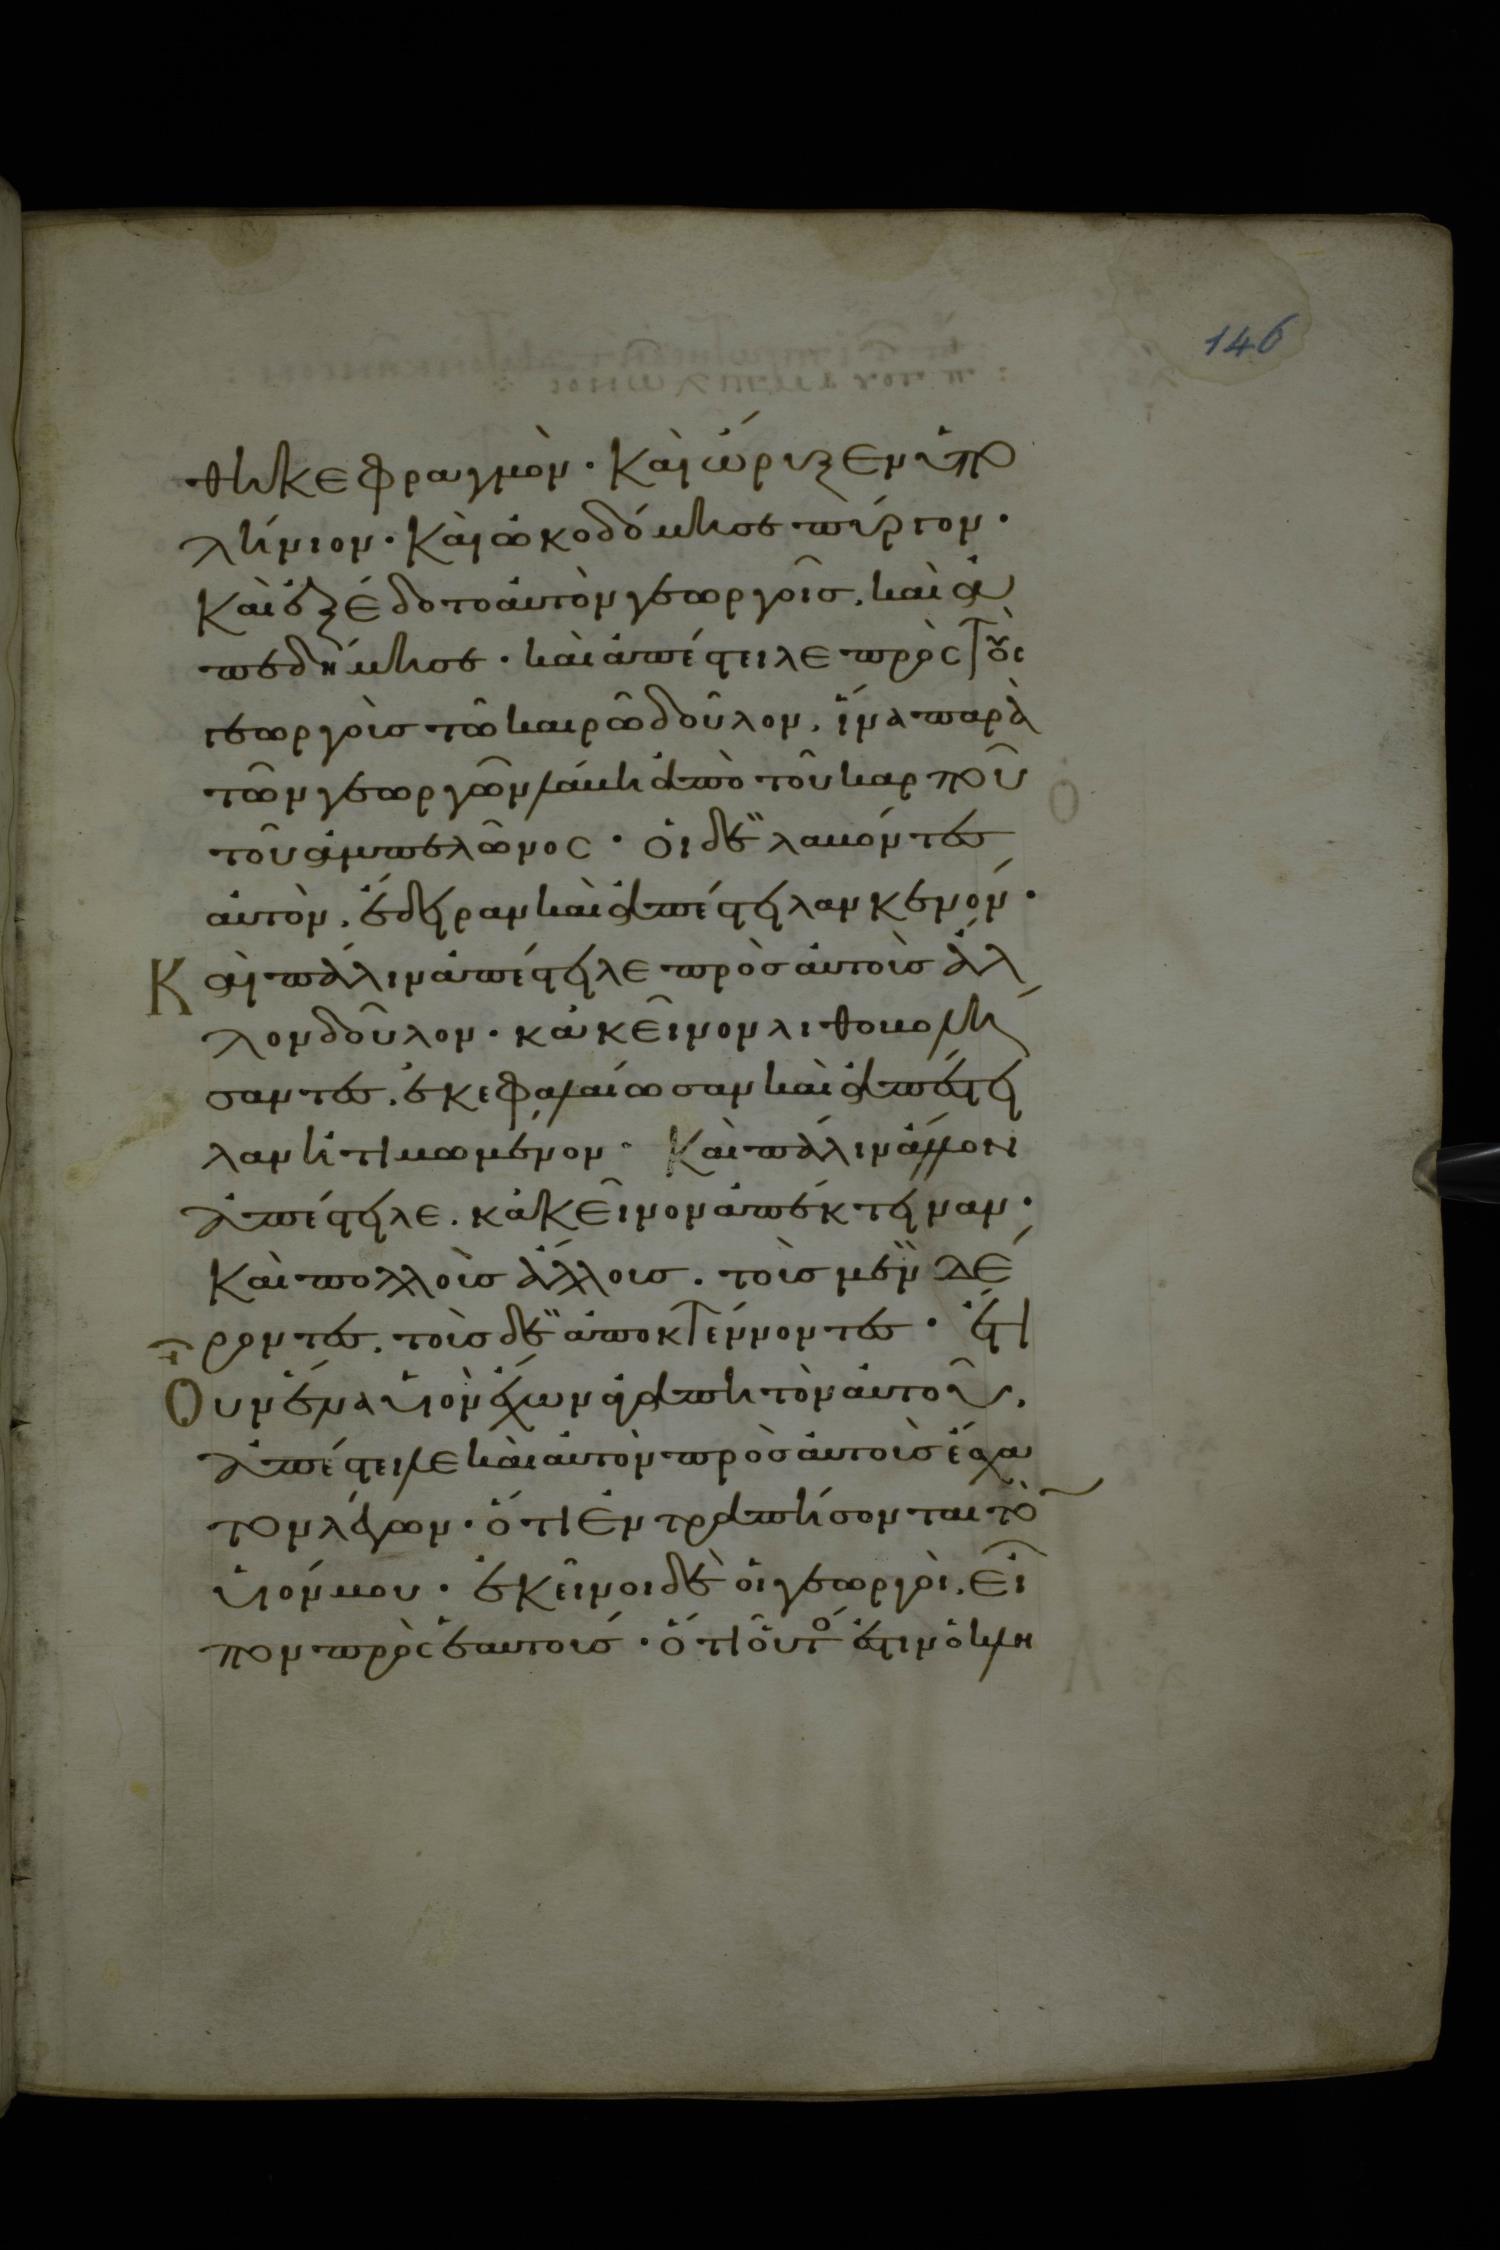 146
θηκε φραγμὸν · Καὶ ὤρυξεν ὑπο
λήνιον · Καὶ ὠκοδόμησε πύργον ·
Καὶ ἐξέδοτο αὐτὸν γεωργοῖς . καὶ ἀ
πεδήμησε · καὶ ἀπέστειλε πρὸς τοὺς
γεωργοὺς τῶ καιρῶ δοῦλον . ἵνα παρὰ
τῶν γεωργῶν λάβη ἀπὸ τοῦ καρποῦ
τοῦ ἀμπελῶνος · οἱ δὲ λαβόντες
αὐτὸν . ἔδειραν καὶ ἀπέστειλαν κενόν ·
Καὶ πάλιν ἀπέστειλε πρὸς αὐτοὺς ἄλ
λον δοῦλον · κἀκεῖνον λιθοβολή
σαντες . ἐκεφαλαίωσαν καὶ ἀπέστει
λαν ἠτιμωμένον · Καὶ πάλιν ἄλλον
ἀπέστειλε . κἀκεῖνον ἀπέκτειναν ·
Καὶ πολλοὺς ἄλλους . τοὺς μὲν δέ
ροντες . τοὺς δὲ ἀποκτέννοντες · ἔτι
Οὖν ἕνα υἱὸν ἔχων ἀγαπητὸν αὐτοῦ .
ἀπέστειλε καὶ αὐτὸν πρὸς αὐτοὺς ἔσχα
τον λέγων · ὅτι ἐντραπήσονται τὸν
υἱόν μου · ἐκεῖνοι δὲ οἱ γεωργοὶ . εἶ
πον πρὸς ἑαυτούς · ὅτι οὗτός ἐστιν ὁ κλη